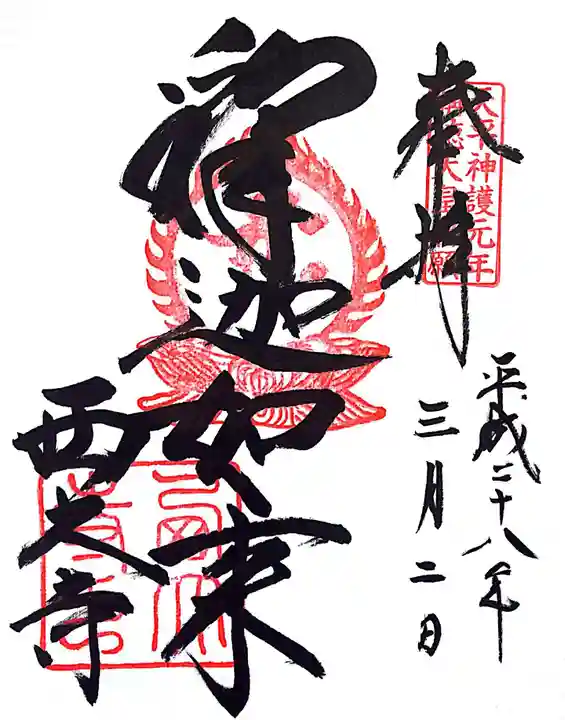 奉拝
天平神護元年
称徳天皇勅願
平成二十八年
三月二日
釈迦如来
西大寺